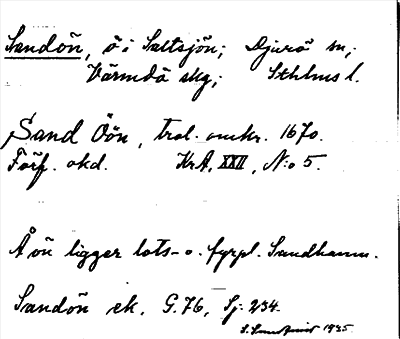 Sandön, ö i Saltsjön; Djurö sn;
Värmdö skg; Sthlms l.
Sand Öön, trol. omkr. 1670.
Förf. okd. KrA, XXII, N:o 5.
Å ön ligger lots- o. fyrpl. Sandhamn.
Sandön ek. G.76, Sj: 234.
1935